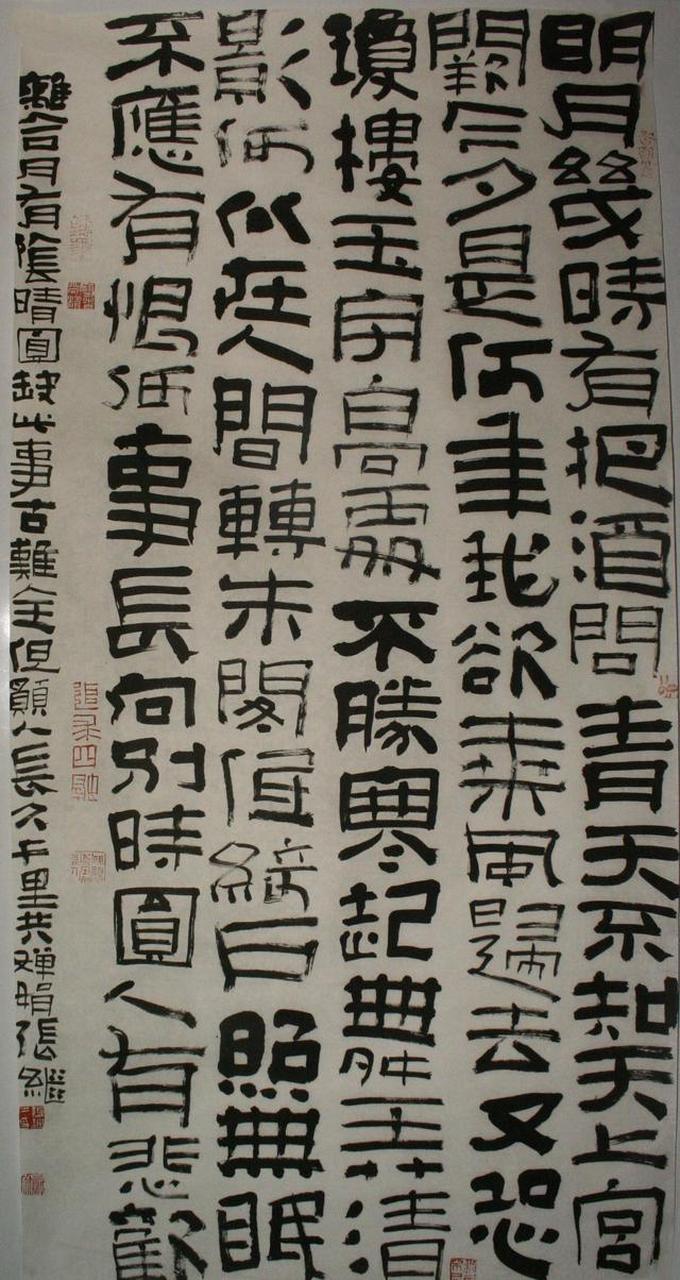 明月幾時有把酒問青天不知天上宮
闕今夕是何年我欲乘風歸去又恐
瓊樓玉宇高處不勝寒起舞弄清
影何似在人間轉朱閣低綺戶照無眠
不應有恨何事長向別時圓人有悲歡
離合月有陰晴圓缺此事古難全但願人長久千里共嬋娟張繼